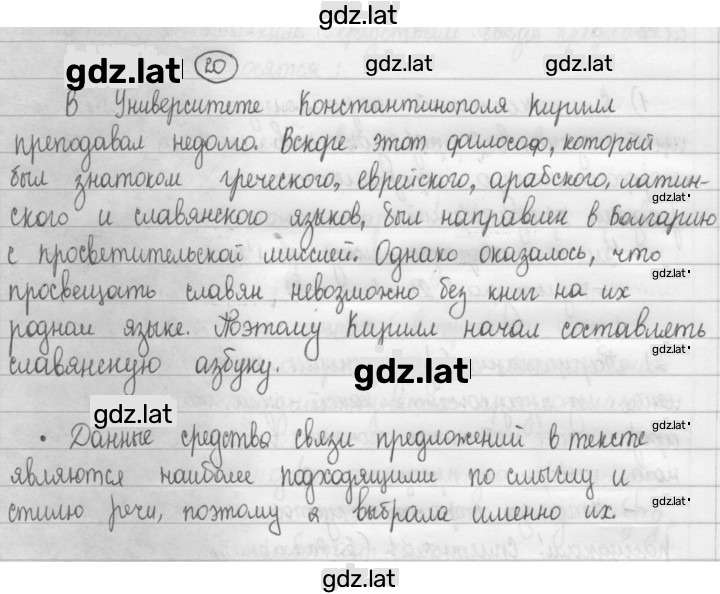 gdz.lat
gdz.lat 20 gdz.lat gdz.lat
В Университете Константинополя Кирилл
преподавал недолго. Вскоре этот философ, который
был знатоком греческого, еврейского, арабского, латин-
gdz.lat
ского и славянского языков, был направлен в Болгарию
с просветительской миссией. Однако оказалось, что
gdz.lat
просвещать славян невозможно без книг на их
родном языке. Поэтому Кирилл начал составлять
gdz.lat
славянскую азбуку.
gdz.lat
gdz.lat
gdz.lat
• Данные средства связи предложений в тексте
являются наиболее подходящими по смыслу и
gdz.lat
стилю речи, поэтому я выбрала именно их.
gdz.lat